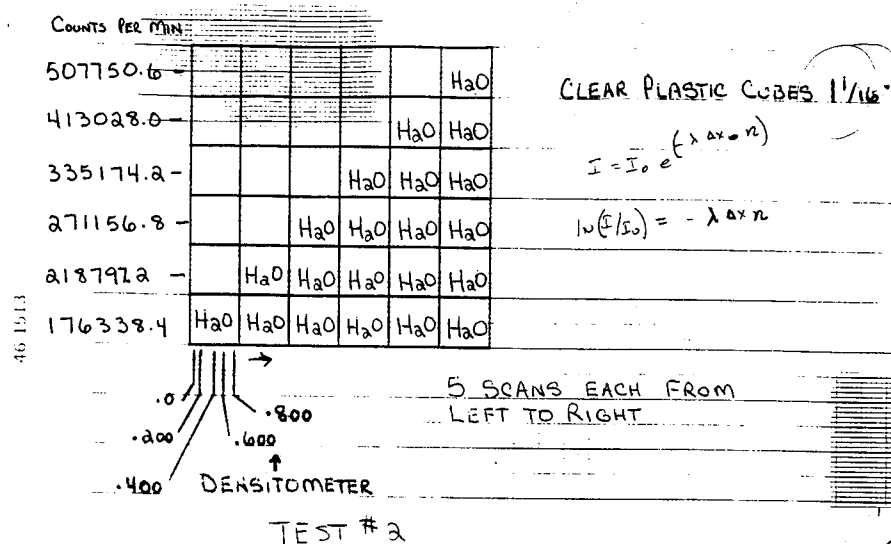 COUNTS PER MIN
507750.6 - H2O
413028.0 - H2O H2O
335174.2 - H2O H2O H2O
271156.8 - H2O H2O H2O H2O
218797.2 - H2O H2O H2O H2O H2O
176338.4 H2O H2O H2O H2O H2O H2O
CLEAR PLASTIC CUBES 1 1/16"
I = I₀ e^(-λ Δx • n)
ln(I/I₀) = - λ Δx n
46 1513
→
.0
.200
.400
.600
.800
↑
DENSITOMETER
5 SCANS EACH FROM
LEFT TO RIGHT
TEST #2